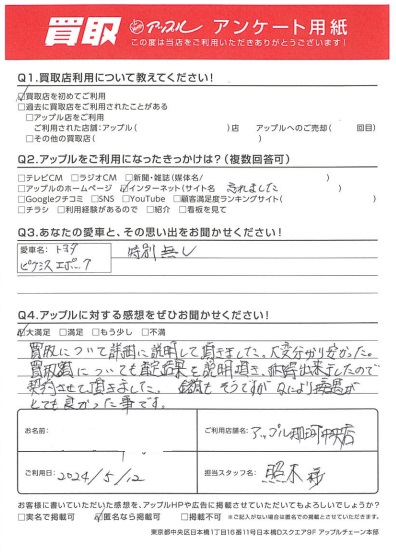 買取 アップル アンケート用紙
この度は当店をご利用いただきありがとうございます!
Q1.買取店利用について教えてください!
☑買取店を初めてご利用
□過去に買取店をご利用されたことがある
□アップル店をご利用
ご利用された店舗:アップル( )店 アップルへのご売却( 回目)
□その他の買取店( )
Q2.アップルをご利用になったきっかけは?(複数回答可)
□テレビCM □ラジオCM □新聞・雑誌(媒体名/ )
□アップルのホームページ ☑インターネット(サイト名 忘れました )
□Googleクチコミ □SNS □YouTube □顧客満足度ランキングサイト( )
□チラシ □利用経験があるので □紹介 □看板を見て
Q3.あなたの愛車と、その思い出をお聞かせください!
愛車名:トヨタ
ピクシスエポック
特別無し
Q4.アップルに対する感想をぜひお聞かせください!
☑大満足 □満足 □もう少し □不満
買取について詳細に説明して頂きました。大変分かり安かった。
買取額についても査定結果を説明頂き、納得出来ましたので
契約させて頂きました。 金額もそうですが 何により接遇が
とても良かった事です。
お名前:
ご利用店舗名: アップル 中央店
ご利用日: 2024/5/12
担当スタッフ名:
お客様に書いていただいた感想を、アップルHPや広告に掲載させていただいてもよろしいでしょうか?
□実名で掲載可 ☑匿名なら掲載可 □掲載不可 ※ご記入がない場合は匿名での掲載とさせていただきます。
東京都中央区日本橋1丁目16番11号日本橋Dスクエア9F アップルチェーン本部